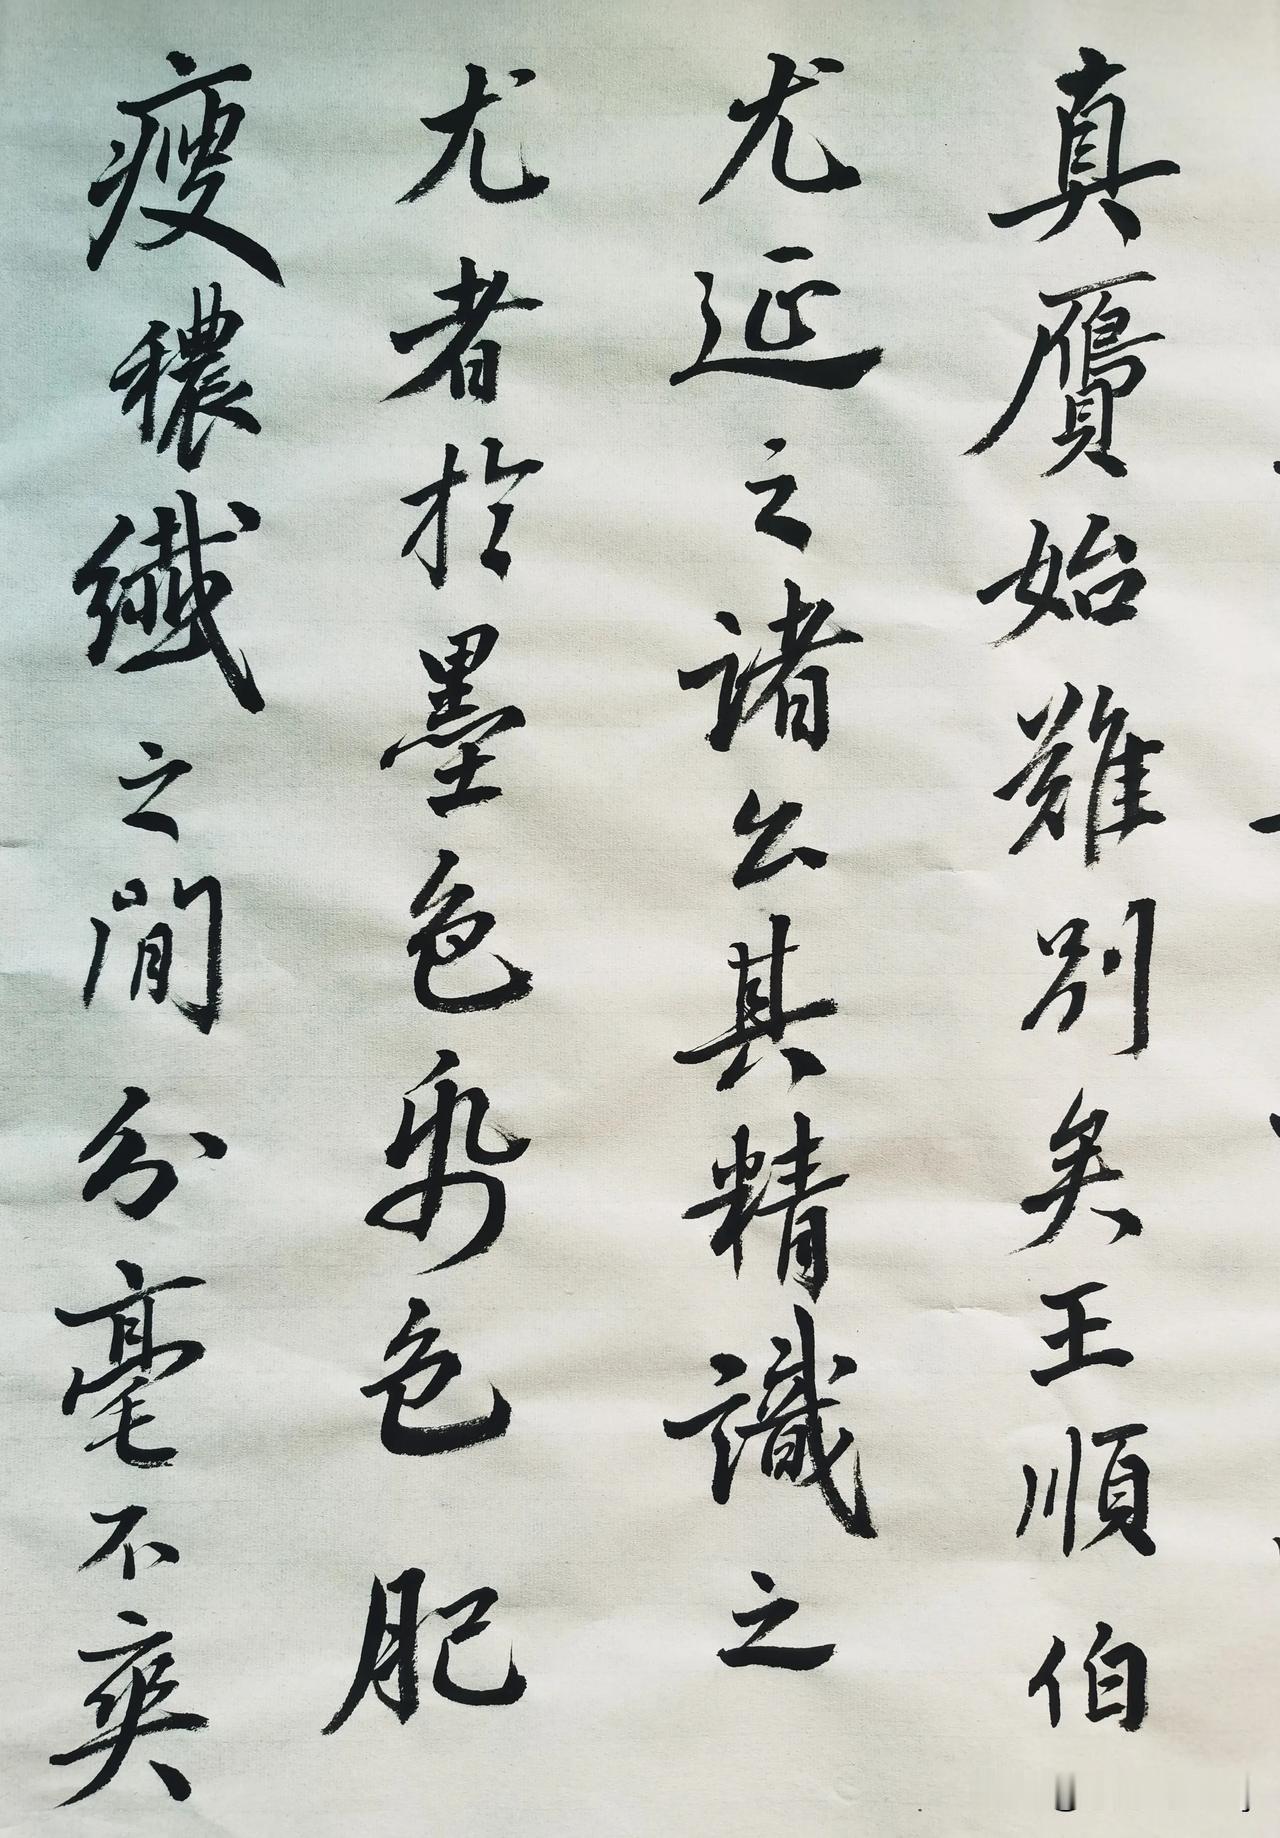 真贗始難別矣王順伯
尤延之諸公其精識之
尤者於墨色紙色肥
瘦穠纖之間分毫不爽